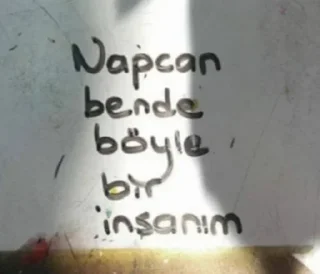 Napcan
bende
böyle
bir
insanım